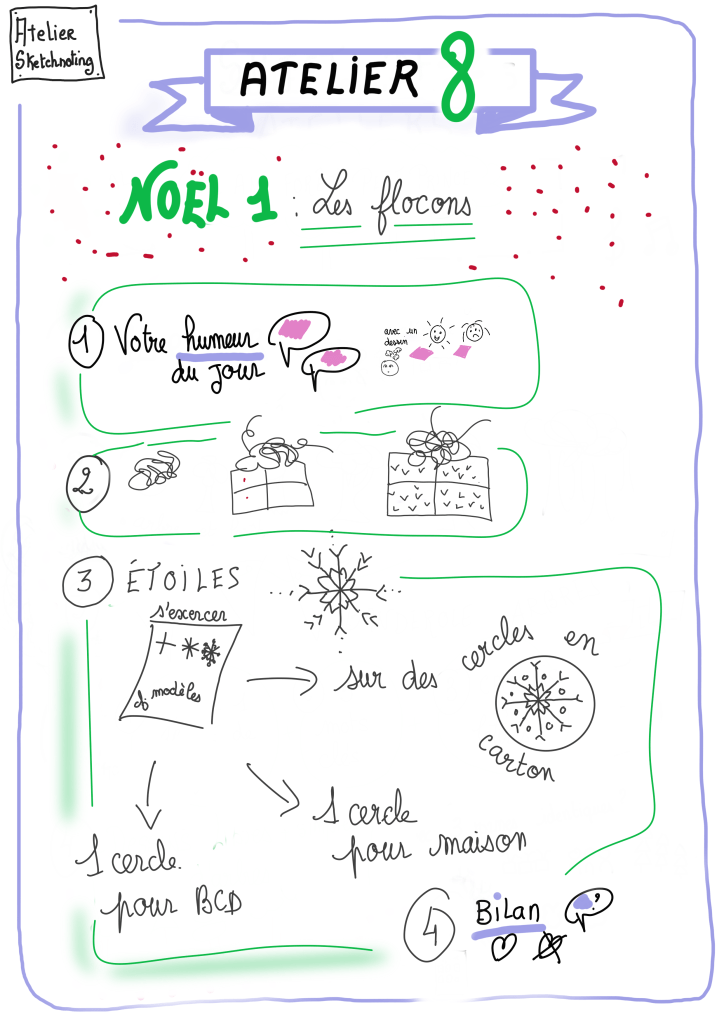 Atelier
Sketchnoting
ATELIER 8
NOËL 1 : Les flocons
1 Votre humeur
du jour
avec un
dessin
2
3 ÉTOILES
s'exercer
modèles
sur des
cercles en
carton
1 cercle
pour maison
1 cercle
pour BCD
4 Bilan